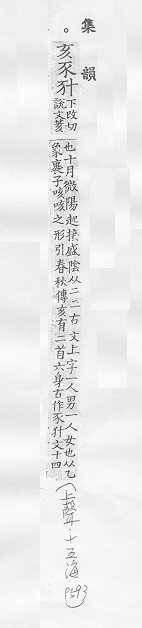 集韻
。亥豕
下改切
說文荄
也十月微陽起接盛陰从二二古文上字一人男一人女也从乙
象裹子咳咳之形引春秋傳亥有二首六身古作豕文十四
(上聲·十五海